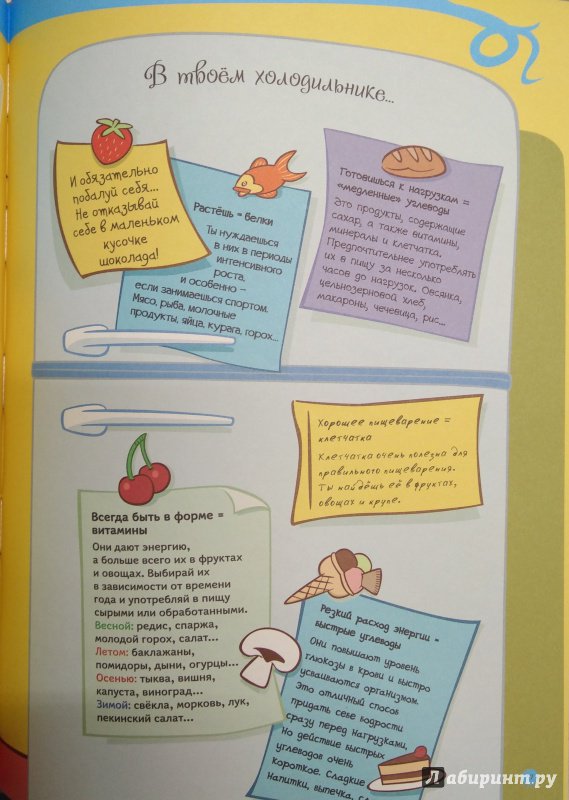 В твоём холодильнике...
И обязательно
побалуй себя...
Не отказывай
себе в маленьком
кусочке
шоколада!
Растёшь = белки
Ты нуждаешься
в них в периоды
интенсивного
роста
и особенно –
если занимаешься спортом.
Мясо, рыба, молочные
продукты, яйца, курага, горох...
Готовишься к нагрузкам =
«медленные» углеводы
Это продукты, содержащие
сахар, а также витамины,
минералы и клетчатка.
Предпочтительнее употреблять
их в пищу за несколько
часов до нагрузок. Овсянка,
цельнозерновой хлеб,
макароны, чечевица, рис...
Хорошее пищеварение =
клетчатка
Клетчатка очень полезна для
правильного пищеварения.
Ты найдёшь её в фруктах,
овощах и крупе.
Всегда быть в форме =
витамины
Они дают энергию,
а больше всего их в фруктах
и овощах. Выбирай их
в зависимости от времени
года и употребляй в пищу
сырыми или обработанными.
Весной: редис, спаржа,
молодой горох, салат...
Летом: баклажаны,
помидоры, дыни, огурцы...
Осенью: тыква, вишня,
капуста, виноград...
Зимой: свёкла, морковь, лук,
пекинский салат...
Резкий расход энергии =
быстрые углеводы
Они повышают уровень
глюкозы в крови и быстро
усваиваются организмом.
Это отличный способ
придать себе бодрости
сразу перед нагрузками.
Но действие быстрых
углеводов очень
короткое. Сладкие
напитки, выпечка,
Лабиринт.ру